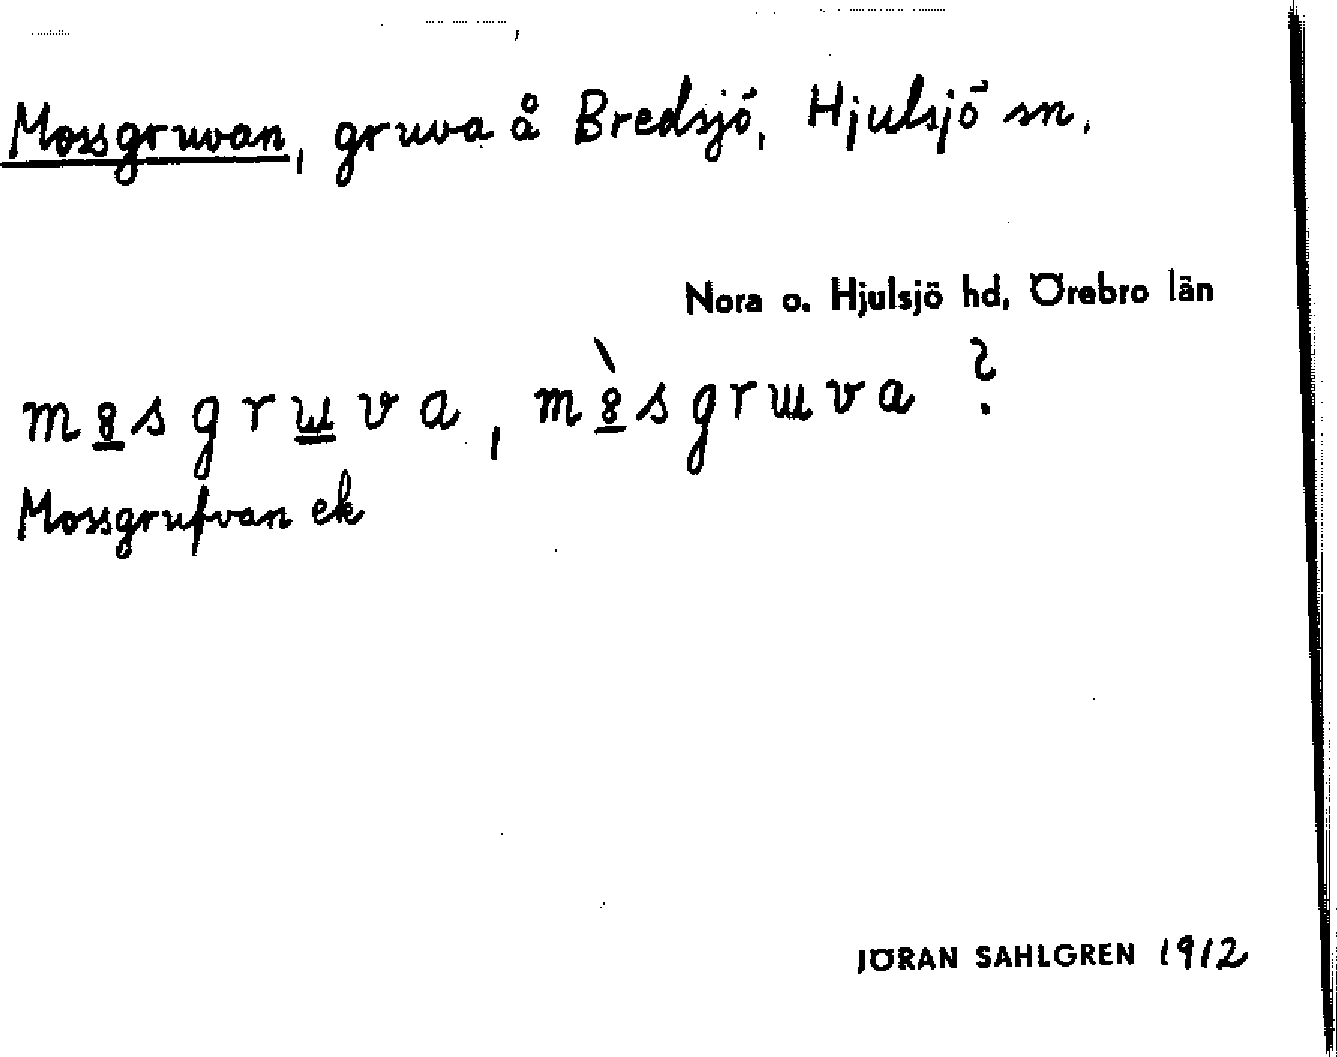 Mossgruvan, gruva å Bredsjö, Hjulsjö sn.
Nora o. Hjulsjö hd, Örebro län
m8sgrɯva, m8̀sgrɯva ?
Mossgrufvan ek
JÖRAN SAHLGREN 1912